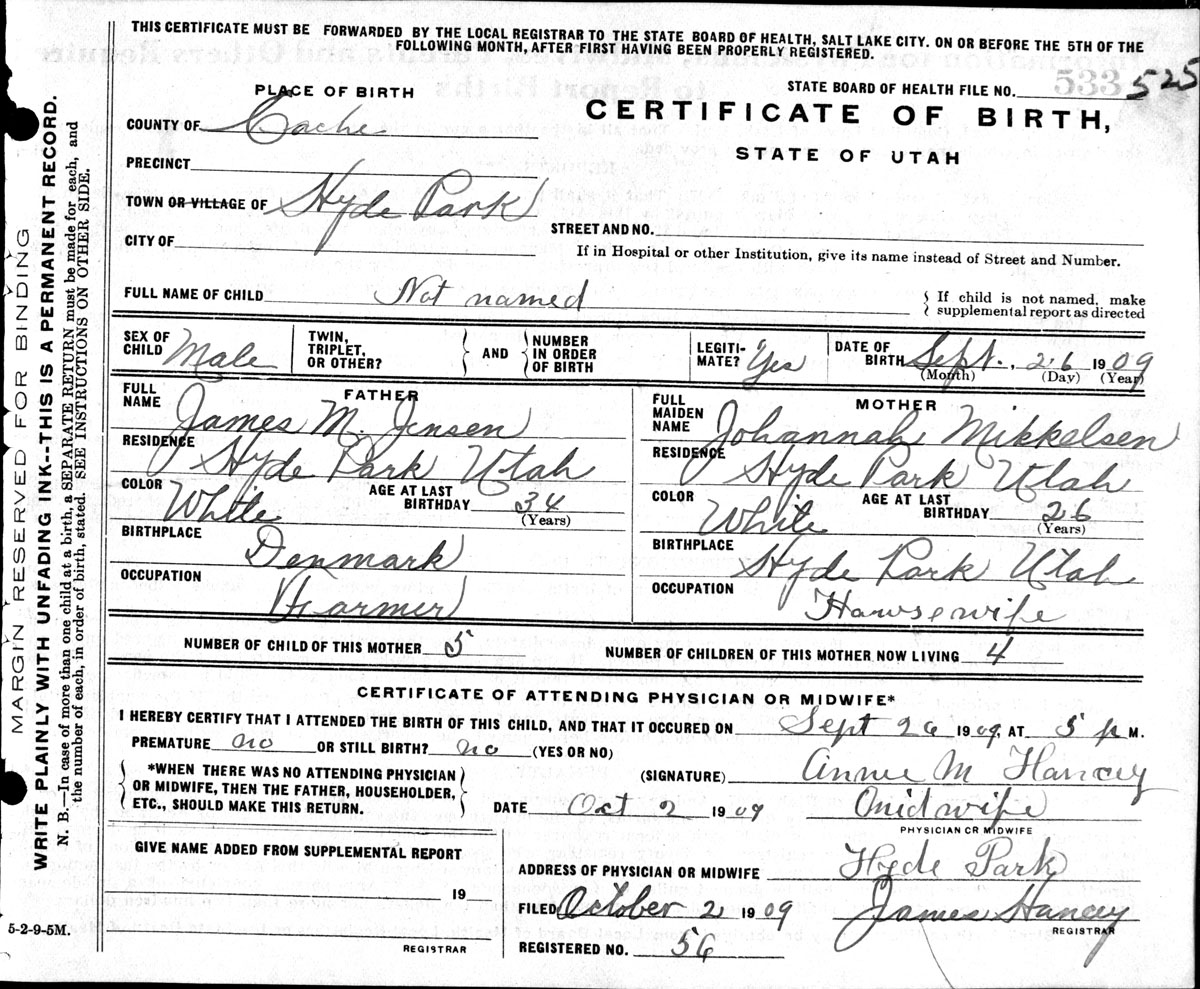 THIS CERTIFICATE MUST BE FORWARDED BY THE LOCAL REGISTRAR TO THE STATE BOARD OF HEALTH, SALT LAKE CITY. ON OR BEFORE THE 5TH OF THE
FOLLOWING MONTH, AFTER FIRST HAVING BEEN PROPERLY REGISTERED.
STATE BOARD OF HEALTH FILE NO. 533 525
PLACE OF BIRTH
CERTIFICATE OF BIRTH,
STATE OF UTAH
COUNTY OF Cache
PRECINCT
TOWN OR VILLAGE OF Hyde Park
STREET AND NO.
CITY OF
If in Hospital or other Institution, give its name instead of Street and Number.
FULL NAME OF CHILD Not named
If child is not named, make
supplemental report as directed
SEX OF
CHILD Male
TWIN,
TRIPLET,
OR OTHER?
AND
NUMBER
IN ORDER
OF BIRTH
LEGITI-
MATE? Yes
DATE OF
BIRTH Sept., 26 1909
(Month) (Day) (Year)
FATHER
FULL
NAME James M. Jensen
RESIDENCE Hyde Park Utah
COLOR White
AGE AT LAST
BIRTHDAY 34
(Years)
BIRTHPLACE Denmark
OCCUPATION Farmer
MOTHER
FULL
MAIDEN
NAME Johannah Mikkelsen
RESIDENCE Hyde Park Utah
COLOR White
AGE AT LAST
BIRTHDAY 26
(Years)
BIRTHPLACE Hyde Park Utah
OCCUPATION Hawsewife
NUMBER OF CHILD OF THIS MOTHER 5
NUMBER OF CHILDREN OF THIS MOTHER NOW LIVING 4
CERTIFICATE OF ATTENDING PHYSICIAN OR MIDWIFE*
I HEREBY CERTIFY THAT I ATTENDED THE BIRTH OF THIS CHILD, AND THAT IT OCCURED ON Sept 26 1909, AT 5 p M.
PREMATURE no OR STILL BIRTH? no (YES OR NO)
*WHEN THERE WAS NO ATTENDING PHYSICIAN
OR MIDWIFE, THEN THE FATHER, HOUSEHOLDER,
ETC., SHOULD MAKE THIS RETURN.
(SIGNATURE) Annie M Hancey
DATE Oct 2 1909
Midwife
PHYSICIAN OR MIDWIFE
GIVE NAME ADDED FROM SUPPLEMENTAL REPORT
19
REGISTRAR
ADDRESS OF PHYSICIAN OR MIDWIFE Hyde Park
FILED October 2 1909
James Hancey
REGISTRAR
REGISTERED NO. 56
5-2-9-5M.
MARGIN RESERVED FOR BINDING
WRITE PLAINLY WITH UNFADING INK--THIS IS A PERMANENT RECORD.
N. B.—In case of more than one child at a birth, a SEPARATE RETURN must be made for each, and
the number of each, in order of birth, stated. SEE INSTRUCTIONS ON OTHER SIDE.